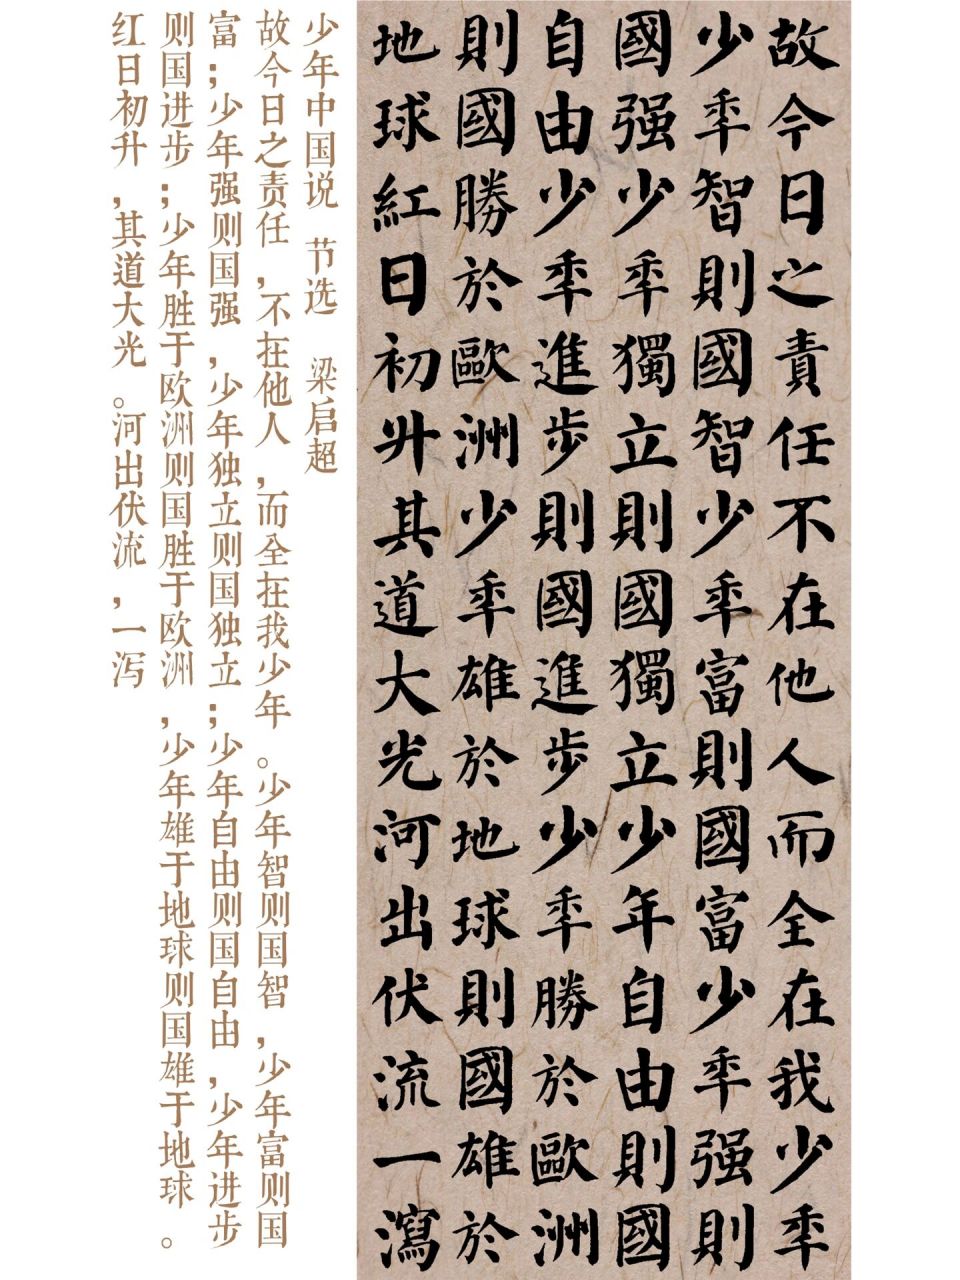 故今日之責任不在他人而全在我少年
少年智則國智少年富則國富少年强則
國强少年獨立則國獨立少年自由則國
自由少年進步則國進步少年勝於歐洲
則國勝於歐洲少年雄於地球則國雄於
地球紅日初升其道大光河出伏流一瀉
少年中国说 节选 梁启超
故今日之责任，不在他人，而全在我少年。少年智则国智，少年富则国
富；少年强则国强，少年独立则国独立；少年自由则国自由，少年进步
则国进步；少年胜于欧洲则国胜于欧洲，少年雄于地球则国雄于地球。
红日初升，其道大光。河出伏流，一泻